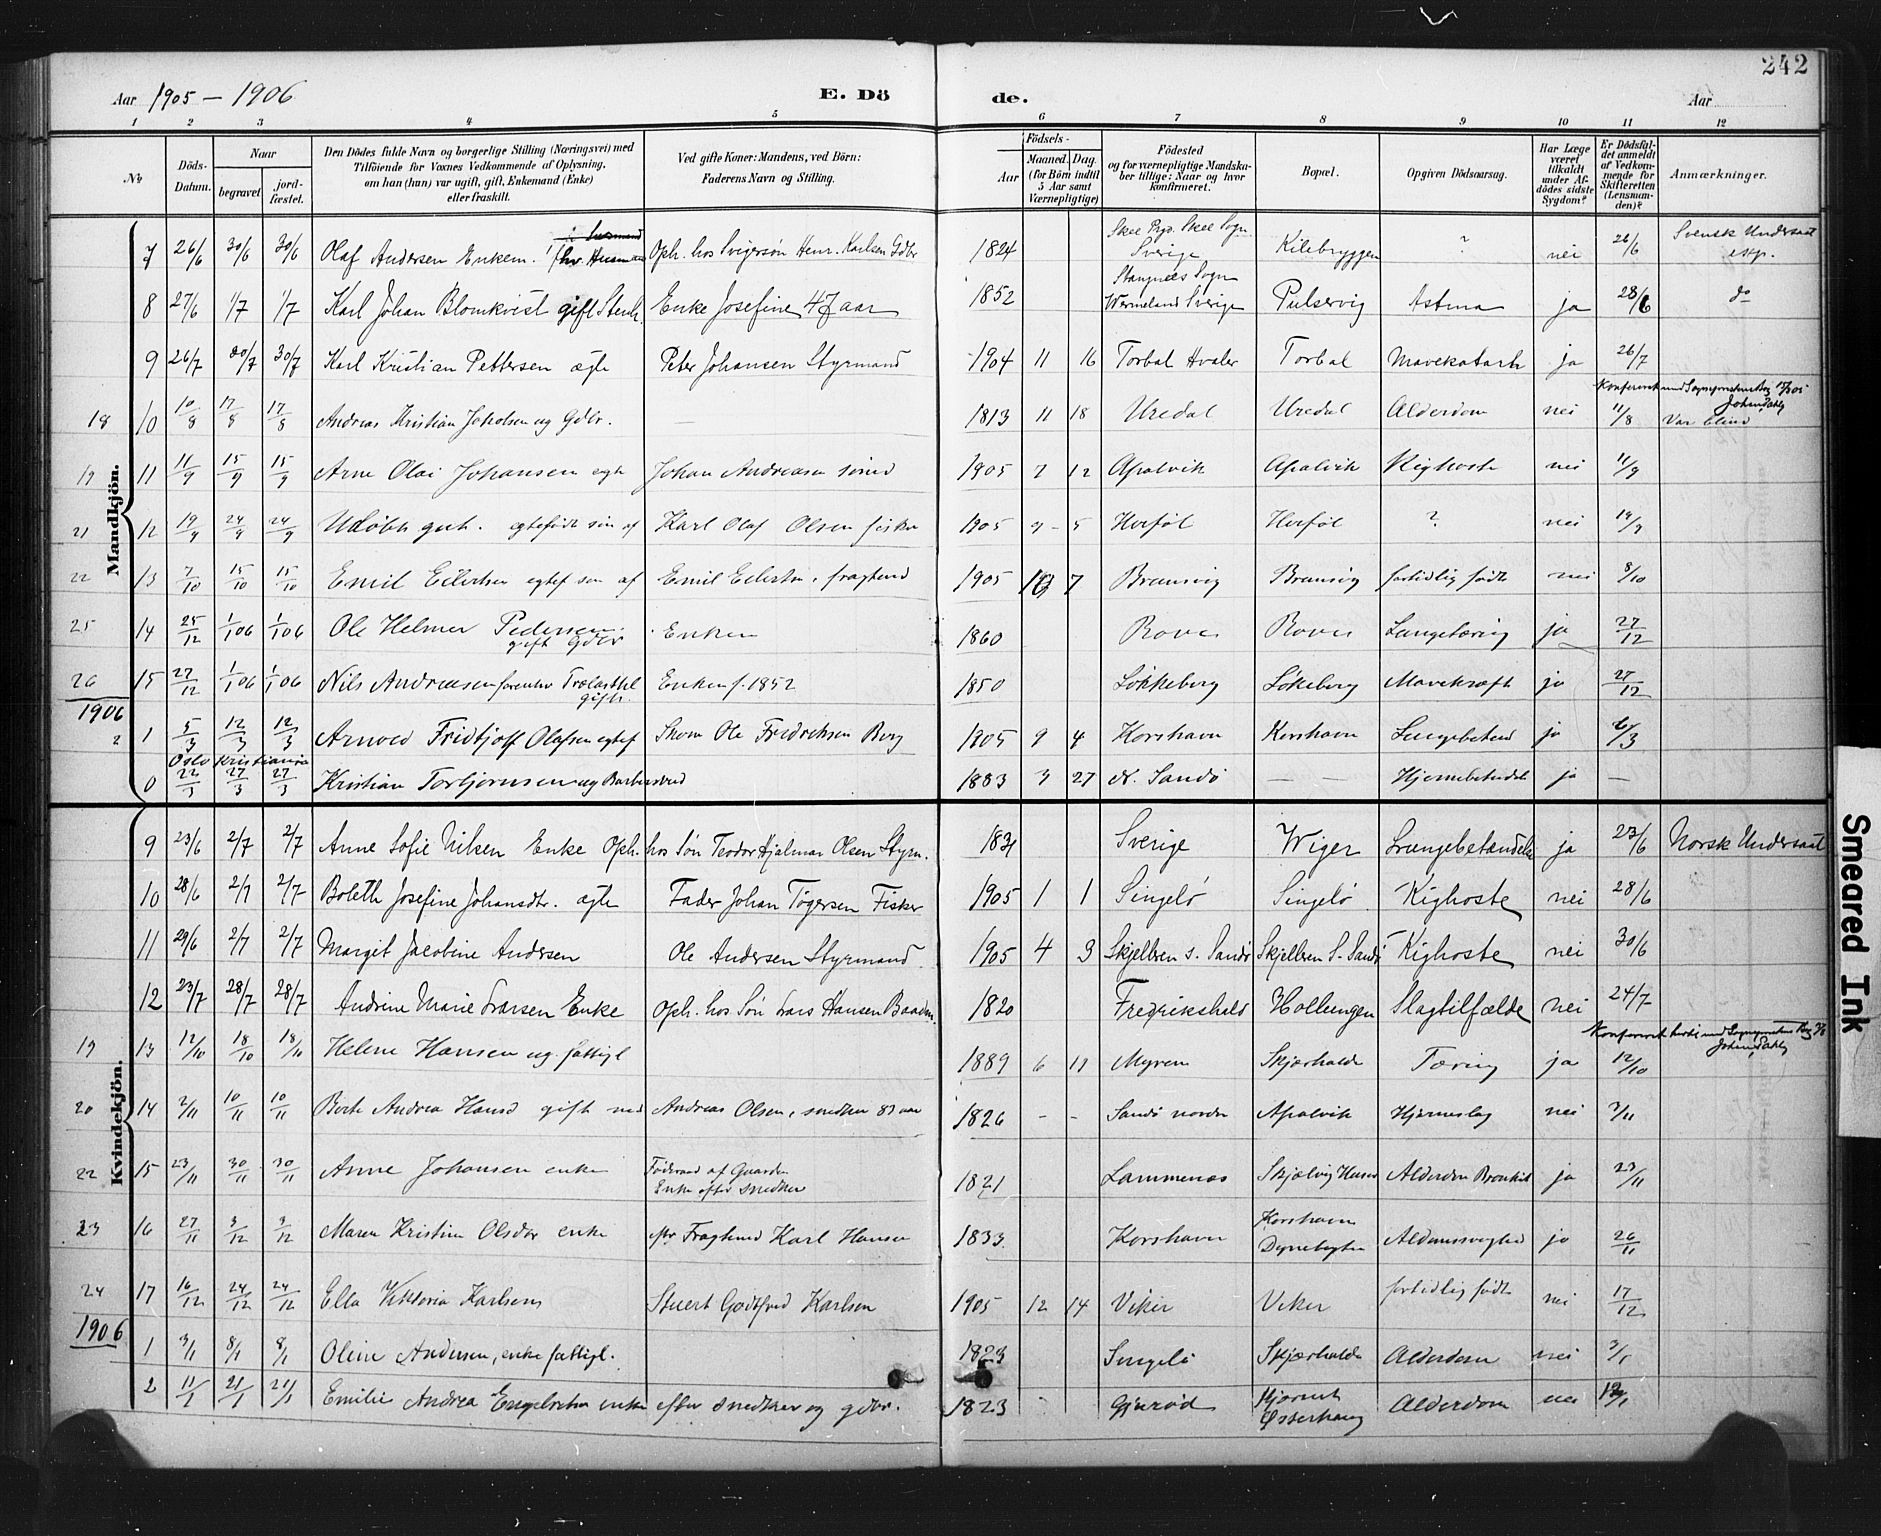 242
Aar 1905 – 1906 E. Dö de. Aar
1 2 3 4 5 6 7 8 9 10 11 12
No Döds-Datum. Naar begravet jordfæstet. Den Dödes fulde Navn og borgerlige Stilling (Næringsvei) med Tilföiende for Voxnes Vedkommende af Oplysning, om han (hun) var ugift, gift, Enkemand (Enke) eller fraskilt. Ved gifte Koner: Mandens, ved Börn: Faderens Navn og Stilling. Födsels- Aar Maaned. Dag. (for Börn indtil 5 Aar samt Værnepligtige) Födested og for værnepligtige Mandskaber tillige: Naar og hvor konfirmeret. Bopæl. Opgiven Dödsaarsag. Har Læge været tilkaldt under Afdödes sidste Sygdom? Er Dödsfaldet anmeldt af Vedkommende for Skifteretten (Lensmanden)? Anmærkninger.
Mandkjön.
7 26/6 30/6 30/6 Olaf Andersen Enkem. fhv Husmand Oph. hos Svigersøn Henr. Karlsen Gdbr 1824 Skee Pgd. Skee Sogn Sverige Kilebryggen ? nei 26/6 Svensk Undersaat
8 27/6 1/7 1/7 Karl Johan Blomkvist gift Stenh. Enke Josefine 47 aar 1852 Stangnæs Sogn Wermeland Sverige Pulservig Astma ja 28/6 do
9 26/7 30/7 30/7 Karl Kristian Pettersen ægte Peter Johansen Styrmand 1904 11 16 Torbal Hvaler Torbal Mavekatarh ja 26/7
18 10 10/8 17/8 17/8 Andreas Kristian Jakobsen ug Gdbr. — 1813 11 18 Uredal Uredal Alderdom nei 11/8 Var blind
19 11 11/9 15/9 15/9 Arne Olai Johansen egte Johan Andreasen sømd 1905 7 12 Apalvik Apalvik Kighoste nei 11/9
21 12 19/9 24/9 24/9 Udøbt gut. egtefødt søn af Karl Olaf Olsen fisker 1905 9 5 Herføl Herføl ? nei 19/9
22 13 7/10 15/10 15/10 Emil Eilertsen egtef søn af Emil Eilertsen, fragtemd 1905 10 7 Bramsvig Bramsvig fortidlig født nei 8/10
25 14 25/12 1/1 06 1/1 06 Ole Helmer Pedersen gift Gdbr Enken 1860 Rove Rove Lungetæring ja 27/12
26 15 27/12 1/1 06 1/1 06 Nils Andreasen forenhv Trælasthl gift. Enken f. 1852 1850 Løkkeberg Løkeberg Mavekræft ja 27/12
1906
2 1 5/3 12/3 12/3 Arnold Fridtjoff Olafsen egtef Skom Ole Fredriksen Berg 1905 9 4 Korshavn Korshavn Lungebetend ja 6/3
Oslo Kristiania
0 22/3 27/3 27/3 Kristian Torbjørnsen ug Barbersvend 1883 3 27 N. Sandø — — Hjernebetendelse ja —
Kvindekjön.
9 23/6 2/7 2/7 Anne Sofie Nilsen Enke Oph. hos Søn Teodor Hjalmar Olsen Styrm. 1831 Sverige Wiger Lungebetændelse ja 23/6 Norsk Undersaat
10 28/6 2/7 2/7 Boleth Josefine Johansdtr. ægte Fader Johan Tøgersen Fisker 1905 1 1 Singelø Singelø Kighoste nei 28/6
11 29/6 2/7 2/7 Margit Jacobine Andersen Ole Andersen Styrmand 1905 4 3 Skjelleren s. Sandø Skjelleren S. Sandø Kighoste nei 30/6
12 23/7 28/7 28/7 Andrine Marie Larsen Enke Oph. hos Søn Lars Hansen Baadm. 1820 Fredrikshald Hollungen Slagtilfælde nei 24/7
19 13 12/10 18/10 18/11 Helene Hansen ug. fattigl 1889 6 11 Myren Skjærhalde Tæring ja 12/10
20 14 2/11 10/11 10/11 Berte Andrea Hansd gift med Andreas Olsen, snedker 83 aar 1826 - - Sandø nordre Apalvik Hjerneslag nei 3/11
22 15 23/11 30/11 30/11 Anne Johansen enke Føderaad af Gaarden Enke efter snedker 1821 Lammenæs Skjælvig Hvaler Alderdom Bronkit ja 23/11
23 16 27/11 3/12 3/12 Maren Kristine Olsdtr enke eftr Fragtemd Karl Hansen 1833 Korshavn Korshavn Alderdomssvaghed ja 26/11
24 17 16/12 24/12 24/12 Ella Viktoria Karlsen Stuert Godtfred Karlsen 1905 12 14 Viker Viker fortidlig født nei 17/12
1906
1 3/1 8/1 8/1 Oline Andersen, enke fattigl. 1823 Singelø Skjærhalde Alderdom nei 3/1
2 11/1 21/1 21/1 Emilie Andrea Engelretsen enke efter snedker og gdbr. 1823 Gjurød Alderdom nei 12/1
Smeared Ink